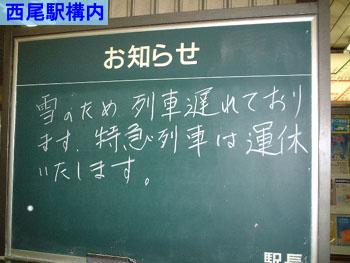 西尾駅構内
お知らせ
雪のため 列車遅れており
ます. 特急列車は運休
いたします。
駅長